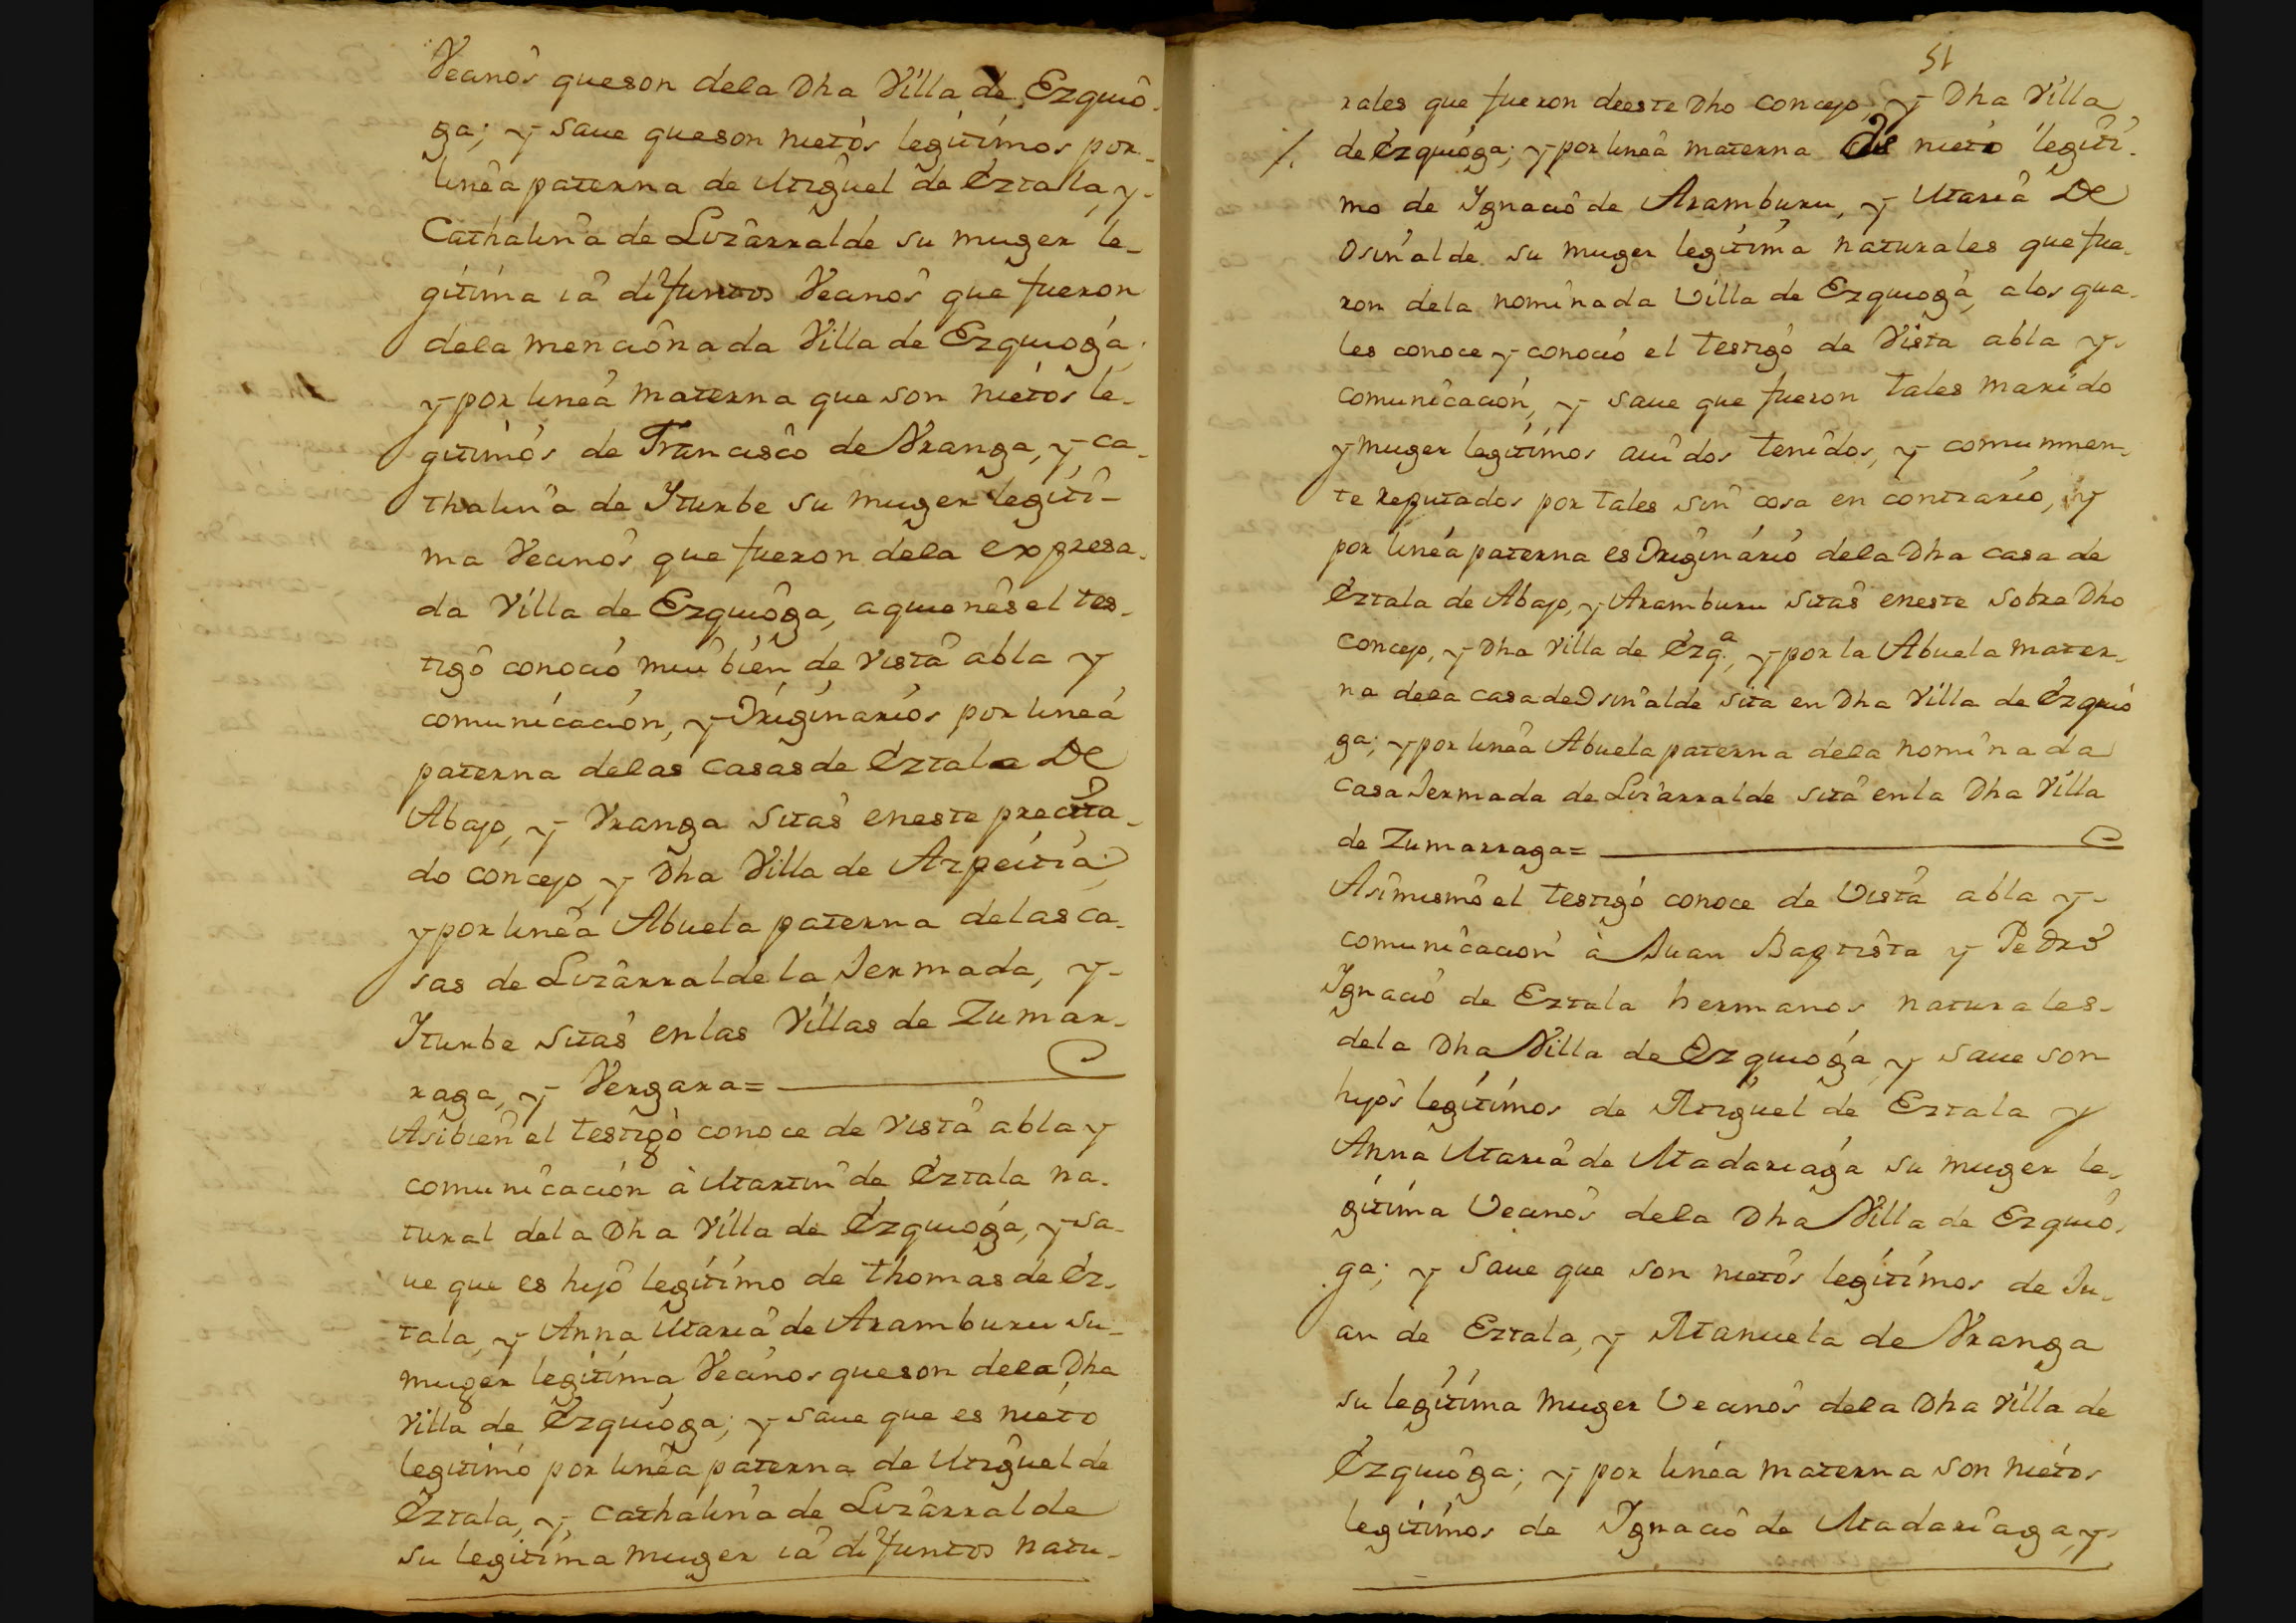 Vecinos queson dela Dha Villa de Ezquio-
ga; y saue queson nietos legitimos por-
linea paterna de Miguel de Eztala, y-
Cathalina de Lizarralde su muger le-
gitima ia difuntos Vecinos que fueron
dela mencionada Villa de Ezquioga,
y por linea materna que son nietos le-
gitimos de Francisco de Vranga, y ca-
thalina de Yturbe su muger legiti-
ma Vecinos que fueron dela expresa-
da Villa de Ezquioga, aquienes el tes-
tigo conocio mui bien de vista abla y
comunicacion, y Originarios por linea
paterna delas casas de Eztala De
Abajo, y Vranga sitas eneste precita-
do concejo y Dha Villa de Azpeitia,
y por linea Abuela paterna delas ca-
sas de Lizarralde la Jermada, y-
Yturbe sitas enlas Villas de Zumar-
raga, y Vergara=
Asibien el testigo conoce de vista abla y
comunicacion à Martin de Eztala na-
tural dela Dha Villa de Ezquioga, y sa-
ue que es hijo legitimo de thomas de Ez-
tala, y Anna Maria de Aramburu su-
muger legitima Vecinos queson dela Dha
Villa de Ezquioga; y saue que es nieto
legitimo por linea paterna de Miguel de
Eztala, y Cathalina de Lizarralde
su legitima muger ia difuntos natu-
51
rales que fueron deeste Dho concejo, y Dha Villa
/. de Ezquioga; y por linea materna es nieto legiti-
mo de Ygnacio de Aramburu, y Maria De
Osinalde su muger legitima naturales que fue-
ron dela nominada Villa de Ezquioga, alos qua-
les conoce y conocio el testigo de Vista abla y-
comunicacion, y saue que fueron tales marido
y muger legitimos auidos tenidos, y comunmen-
te reputados por tales sin cosa en contrario, y
por linea paterna es Originario dela Dha casa de
Eztala de Abajo, y Aramburu sitas eneste sobre Dho
concejo, y Dha Villa de Ezq.ª, y por la Abuela mater-
na dela casa de Osinalde sita en Dha Villa de Ezquio
ga; y por linea Abuela paterna dela nominada
casa Jermada de Lizarralde sita enla Dha Villa
de Zumarraga=
Asimismo el testigo conoce de Vista abla y-
comunicacion à Juan Baptista y Pedro
Ygnacio de Eztala hermanos naturales-
dela Dha Villa de Ezquioga, y saue son
hijos legitimos de Miguel de Eztala y
Anna Maria de Madariaga su muger le-
gitima Vecinos dela Dha Villa de Ezquio-
ga; y saue que son nietos legitimos de Ju-
an de Eztala, y Manuela de Vranga
su legitima muger Vecinos dela Dha Villa de
Ezquioga; y por linea materna son nietos
legitimos de Ygnacio de Madariaga, y-